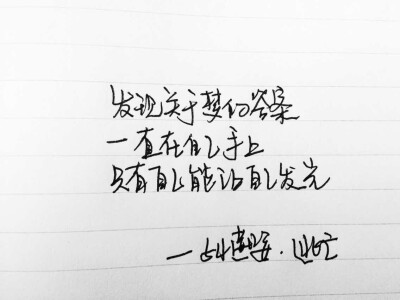 发现关于梦的答案
一直在自己手上
只有自己能让自己发光
—孙燕姿.逃亡